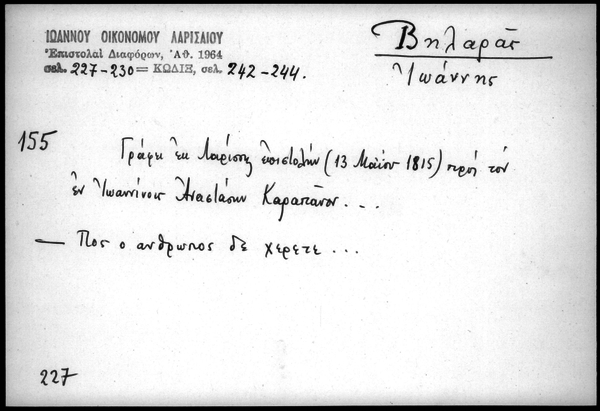 ΙΩΑΝΝΟΥ ΟΙΚΟΝΟΜΟΥ ΛΑΡΙΣΑΙΟΥ
Ἐπιστολαὶ Διαφόρων, Ἀθ. 1964
σελ. 227-230 = ΚΩΔΙΞ, σελ. 242-244.
Βηλαρᾶς
Ἰωάννης
155
Γράφει ἐκ Λαρίσης ἐπιστολὴν (13 Μαΐου 1815) πρὸς τὸν
ἐν Ἰωαννίνοις Ἀναστάσιον Καραπάνον...
— Πος ο ανθρωπος δε χερετε...
227